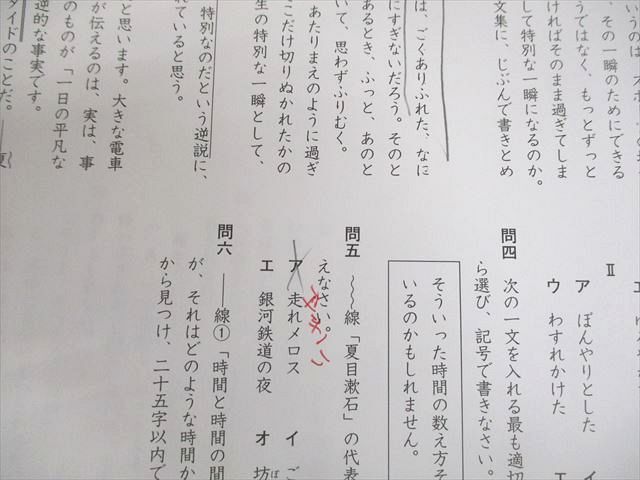 、その一瞬のためにできる
うではなく、もっとずっと
ければそのまま過ぎてしま
して特別な一瞬になるのか。
文集に、じぶんで書きとめ
は、ごくありふれた、なに
にすぎないだろう。そのと
あるとき、ふっと、あのと
いて、思わずふりむく。
あたりまえのように過ぎ
こだけ切りぬかれたかの
生の特別な一瞬として、
特別なのだという逆説に、
れていると思う。
と思います。大きな電車
が伝えるのは、実は、事
のものが「一日の平凡な
逆的な事実です。
イドのことだ。
Ⅱ
ア ぼんやりとした
ウ わすれかけた
問四 次の一文を入れる最も適切
ら選び、記号で書きなさい。
そういった時間の数え方そ
いるのかもしれません。
問五 〜〜線「夏目漱石」の代表
えなさい。
ア 走れメロス イ
エ 銀河鉄道の夜 オ 坊
問六 ――線①「時間と時間の間
が、それはどのような時間か
から見つけ、二十五字以内で